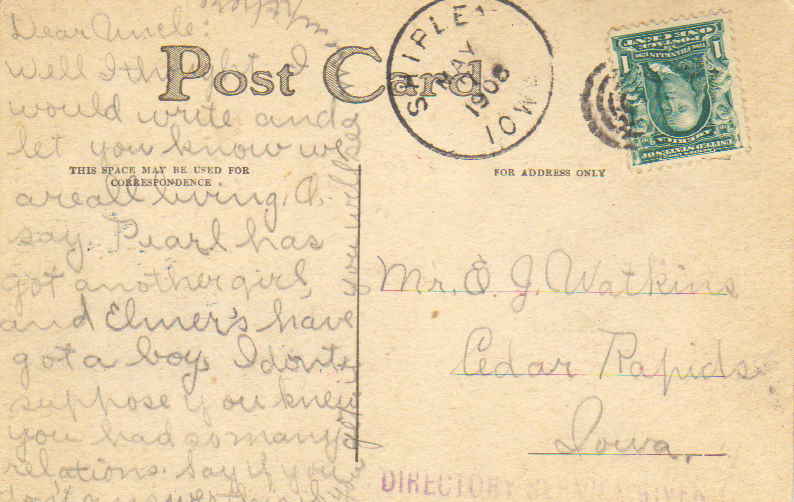 Dear Uncle:
Well I thought I
would write and
let you know we
are all living. O.
say. Pearl has
got another girl,
and Elmer's have
got a boy. I don't
suppose you knew
you had so many
relations. Say if you
don't answer this
Post Card
THIS SPACE MAY BE USED FOR
CORRESPONDENCE
SHIPLEY
NAV
1908
IOWA
ONE CENT
POSTAGE
1 1
UNITED STATES OF
AMERICA
FOR ADDRESS ONLY
Mr. E. J. Watkins
Cedar Rapids
Iowa.
DIRECTORY SERVICE GIVEN